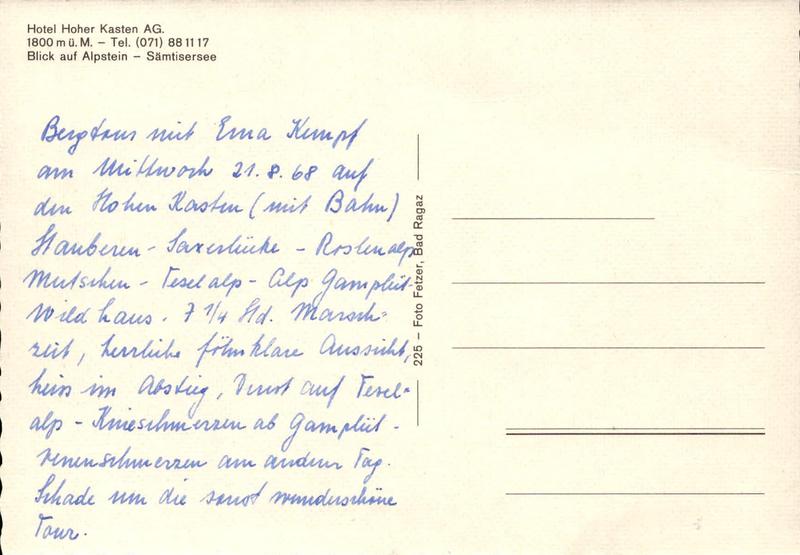 Hotel Hoher Kasten AG.
1800 m ü. M. – Tel. (071) 88 11 17
Blick auf Alpstein – Sämtisersee
Bergtour mit Erna Kempf
am Mittwoch 21.8.68 auf
den Hohen Kasten (mit Bahn)
Stauberen - Saxerlücke - Roslenalp
Mutschen - Teselalp - Alp Gamplüt-
Wildhaus. 7 1/4 Std. Marsch-
zeit, herrliche föhnklare Aussicht,
heiss im Abstieg, Durst auf Tesel-
alp - Knieschmerzen ab Gamplüt -
Venenschmerzen am andern Tag.
Schade um die sonst wunderschöne
Tour.
225 – Foto Fetzer, Bad Ragaz